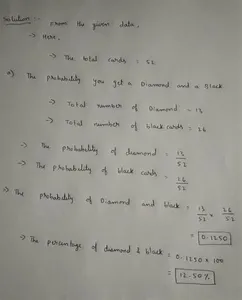 Solution :- From the given data,
→ Here,
→ The total cards : 52
a) The probability you get a Diamond and a Black.
→ Total number of Diamond - 13
→ Total number of black cards = 26
→ The probability of diamond = 13/52
→ The probability of black cards = 26/52
→ The probability of Diamond and black = 13/52 × 26/52
= 0.1250
→ The percentage of diamond & black = 0.1250 × 100
= 12.50%